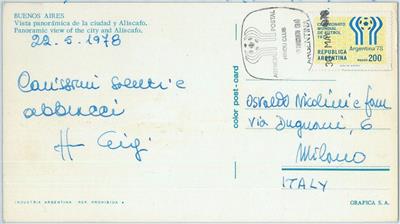 BUENOS AIRES
Vista panorámica de la ciudad y Aliscafo.
Panoramic view of the city and Aliscafo.
22.5.1978
Carissimi saluti e
abbracci
Gigi
INDUSTRIA ARGENTINA REP. PROHIBIDA
color post-card
POSTAL
CAMPEONATO
MUNDIAL
DE FUTBOL
REPUBLICA
ARGENTINA
Argentina '78
PESOS 200
Osvaldo Nicolini e fam
via Dugnani, 6
Milano
ITALY
GRAFICA S.A.